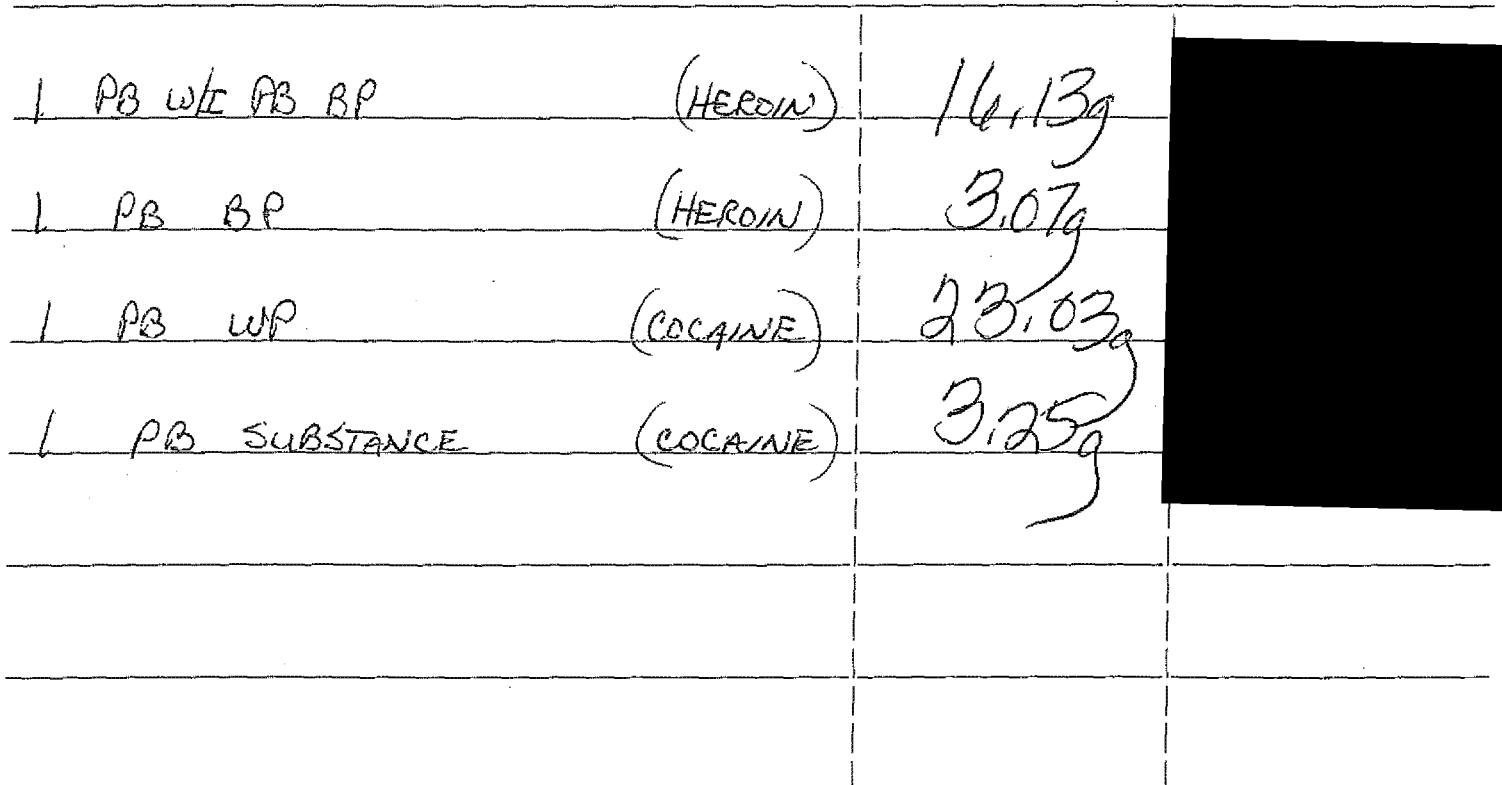 1 PB W/I PB BP (HEROIN) 16.13g
1 PB BP (HEROIN) 3.07g
1 PB WP (COCAINE) 23.03g
1 PB SUBSTANCE (COCAINE) 3.25g